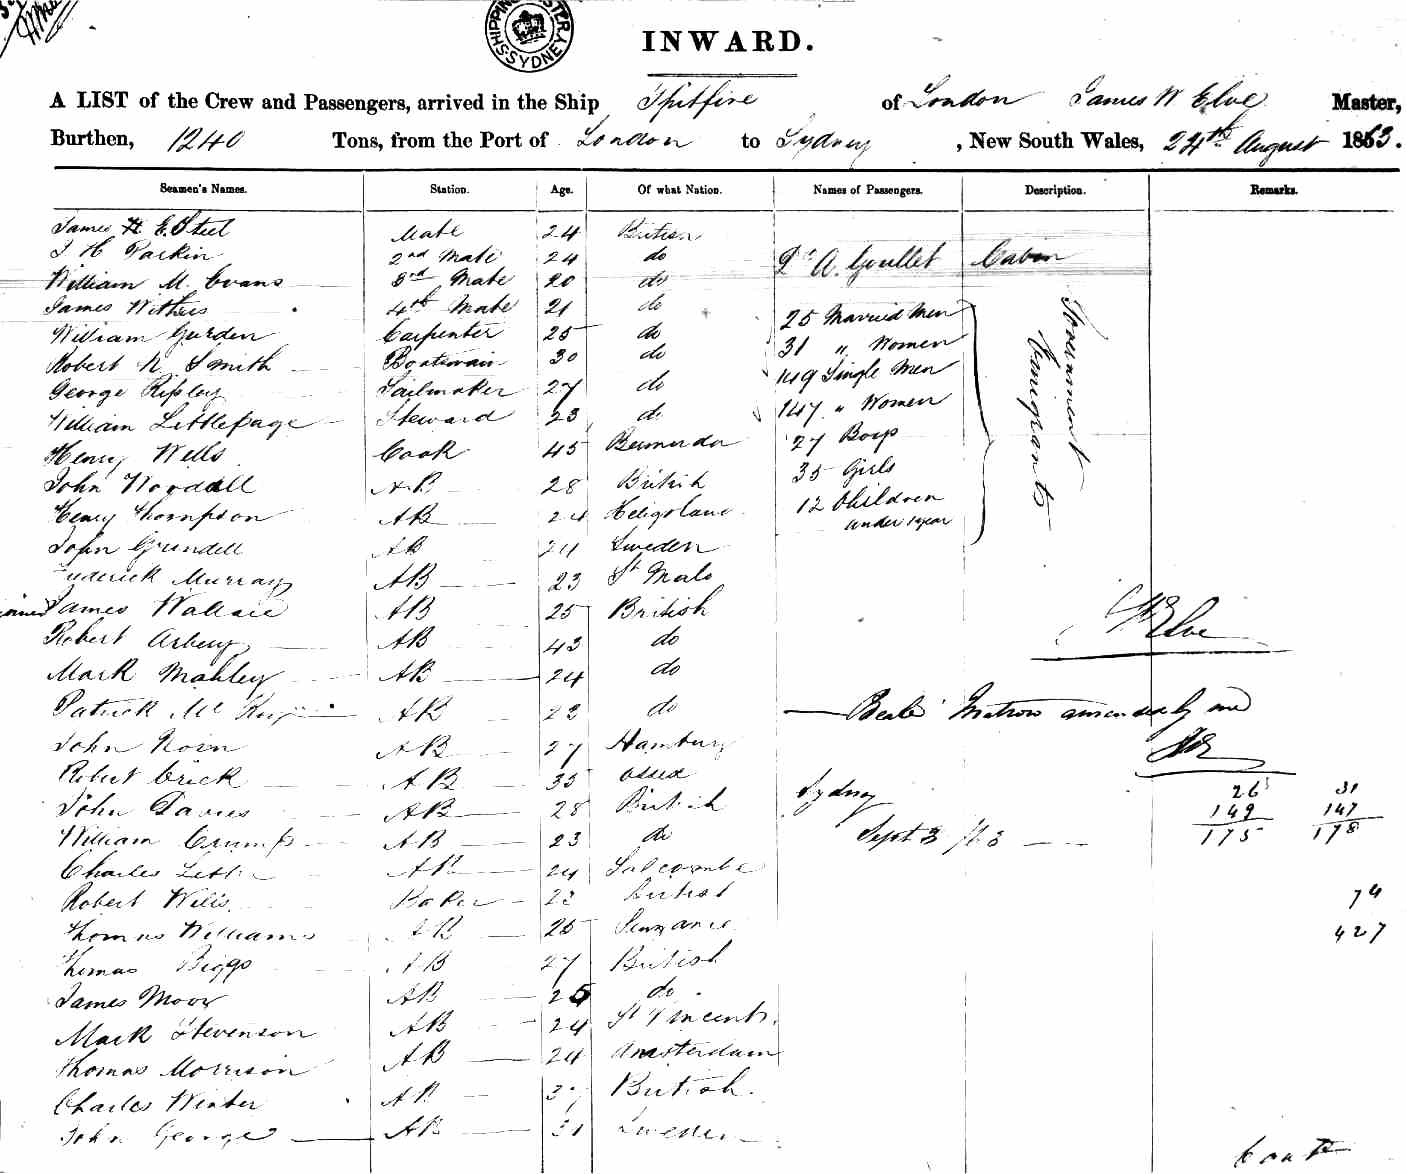 SHIPPING MASTER SYDNEY
INWARD.
A LIST of the Crew and Passengers, arrived in the Ship Spitfire of London James W Elve Master,
Burthen, 1240 Tons, from the Port of London to Sydney, New South Wales, 24th August 1863.
Seamen's Names. Station. Age. Of what Nation. Names of Passengers. Description. Remarks.
James E. Steel Mate 24 British
J H Parkin 2nd Mate 24 do Dr A. Goullet Cabin
William M. Evans 3rd Mate 20 do
James Withers 4th Mate 21 do 25 Married Men Government Emigrants
William Gurden Carpenter 25 do 31 " Women
Robert N. Smith Boatswain 30 do 149 Single Men
George Ripley Sailmaker 27 do 147 " Women
William Littlepage Steward 23 do 27 Boys
Henry Wells Cook 45 Bermuda 35 Girls
John Woodall AB 28 British 12 Children
Henry Thompson AB 24 Heligoland under 1 year
John Grundell AB 24 Sweden
Frederick Murray AB 23 St Malo
James Wallace AB 25 British
Robert AB 43 do Elve
Mark Mahley AB 24 do
Patrick Mc AB 23 do Matron amended by me
John AB 27 Hamburg
Robert Crick AB 35 Essex Sydney 26 31
John Davies AB 28 British 149 147
William Crump AB 23 do Sept 3 /63 175 178
Charles AB 24 Salcombe
Robert Willis Baker 23 British 74
Thomas Williams AB 25 Penzance 427
Thomas Biggs AB 27 British
James Moor AB 25 do
Mark Stevenson AB 24 St Vincents.
Thomas Morrison AB 24 Amsterdam
Charles Winter AB 37 British.
John George AB 31 Sweden